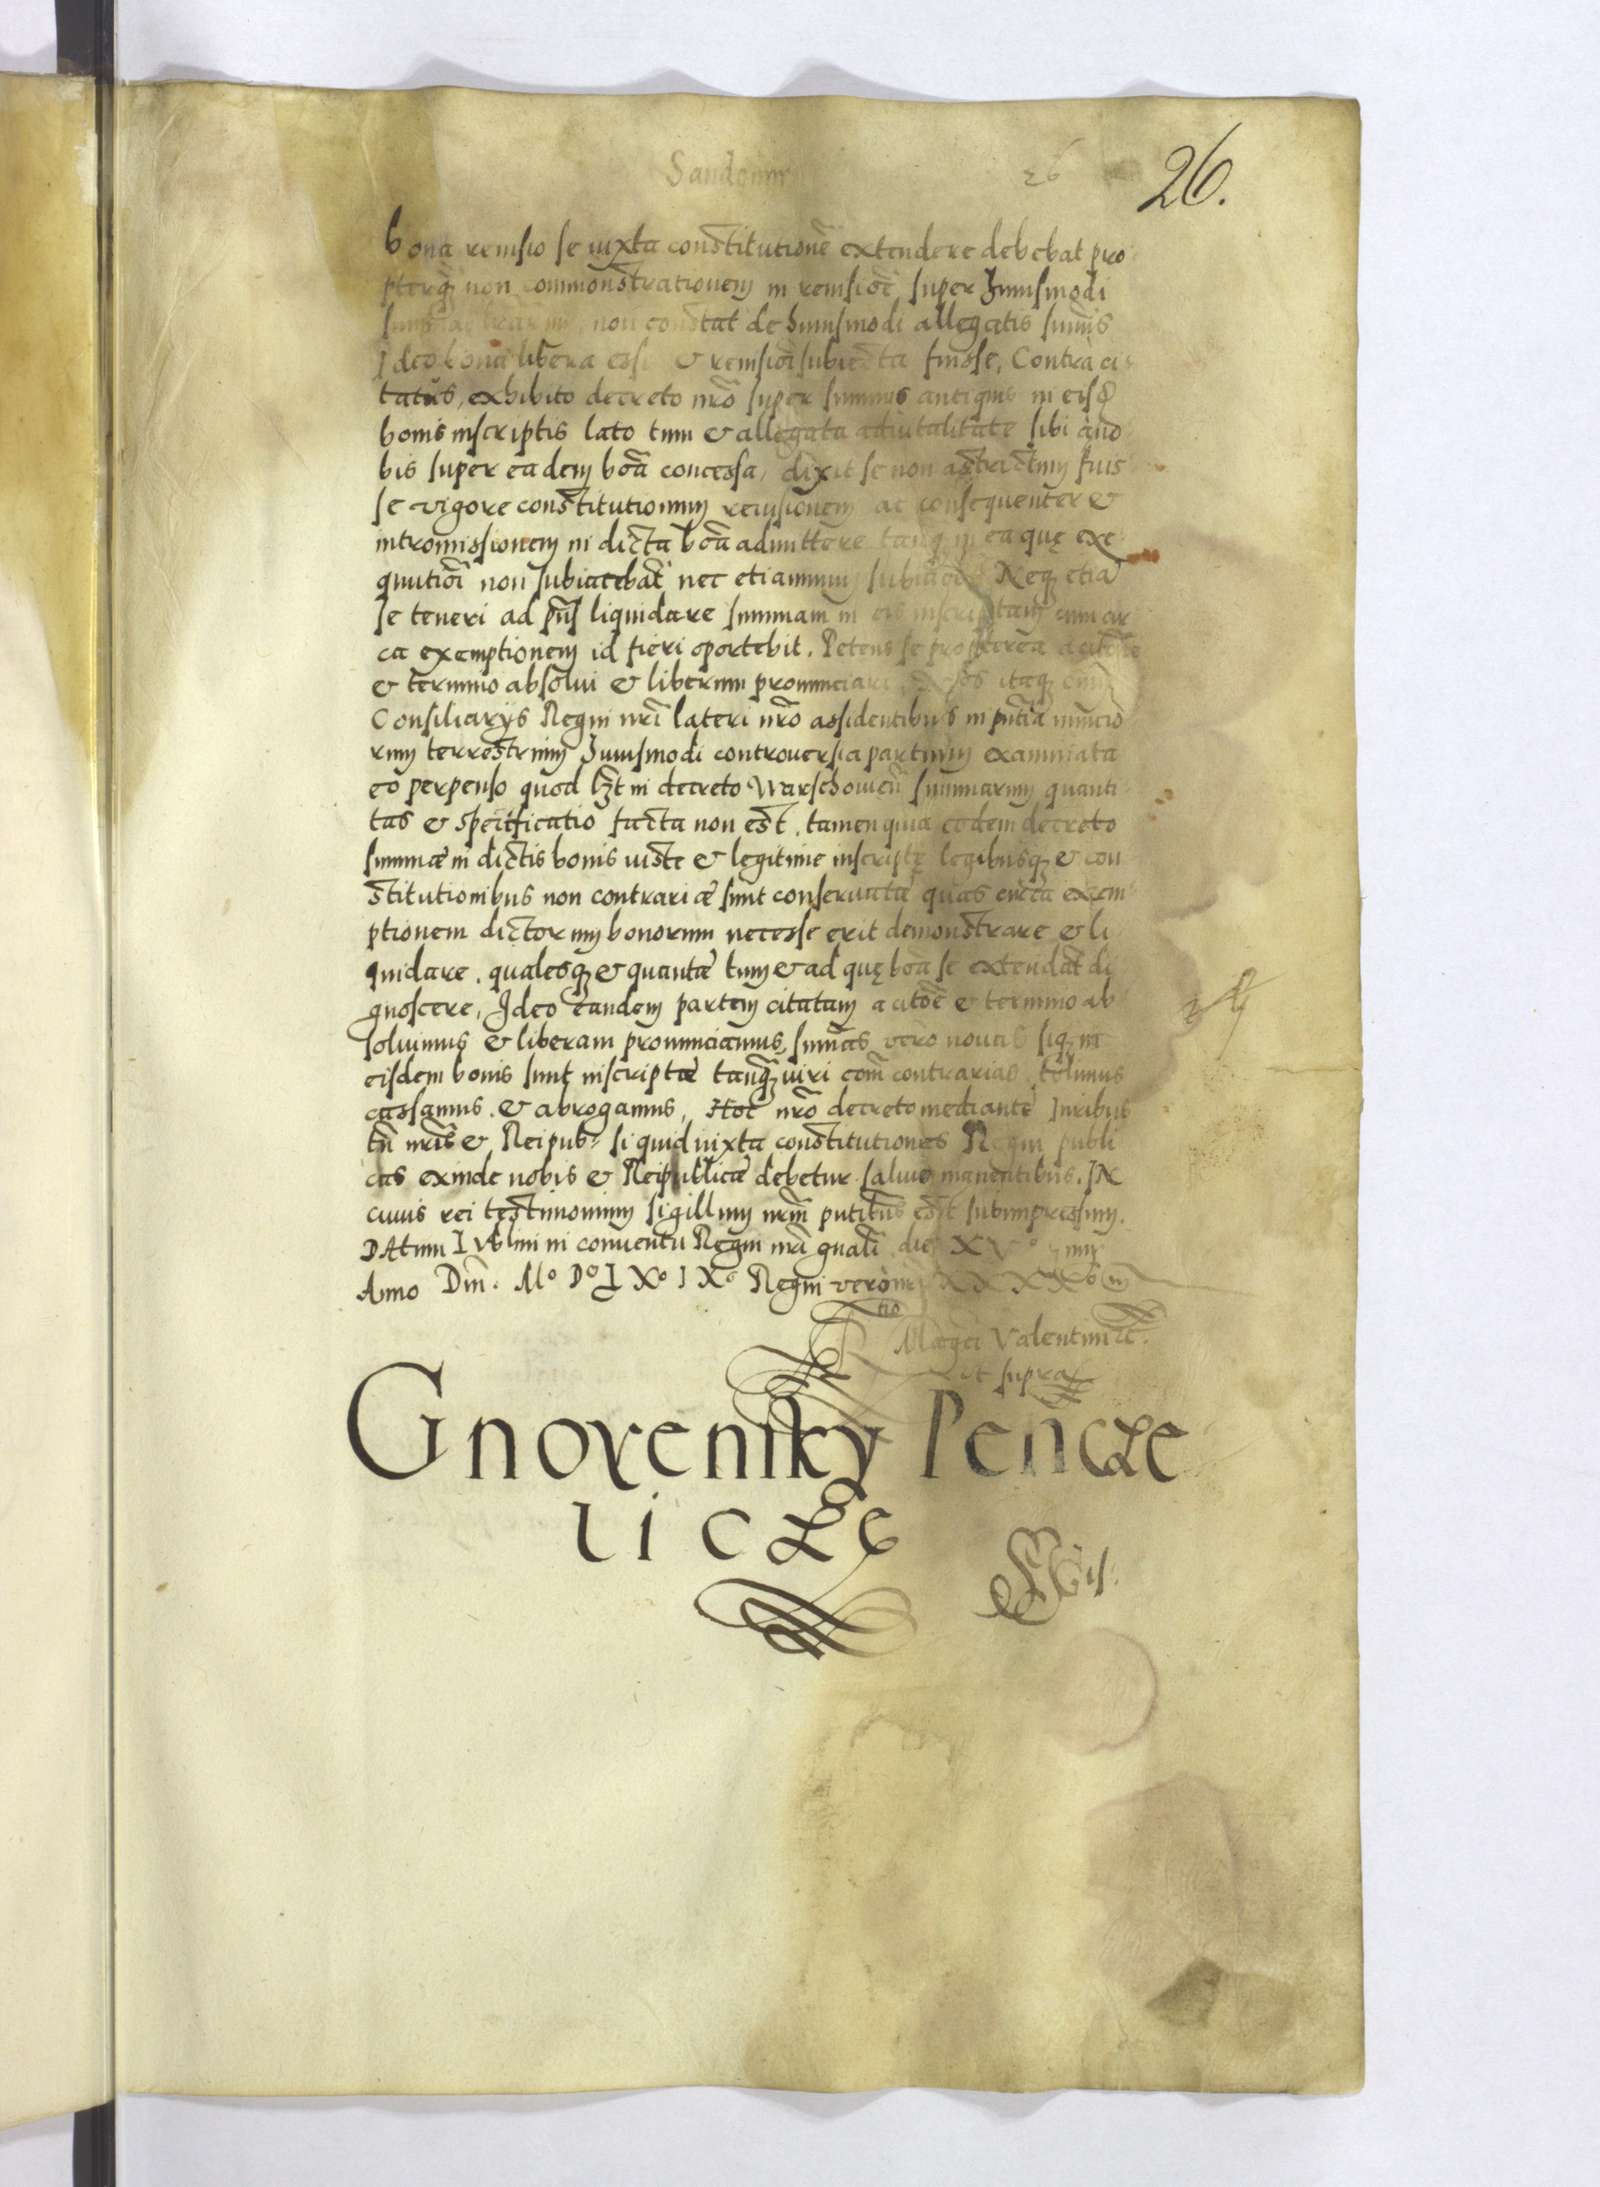 Sandomir
26
26.
bona reuisio se iuxta constitutionẽ extendere debebat pro
pterq3 non commonstrationem in reuisiõe super huiusmodi
non constat de huiusmodi allegatis sum̃is
Ideo bona libera esse & reuisiõi subiecta fuisse, Contra ci
tatus, exhibito decreto nr̃o super summis antiquis in eisd̃
bonis inscriptis lato tum & allegata aduitalitate sibi ano
bis super eadem bõa concessa, dixit se non astrictum fuis
se vigore constitutionum reuisionem ac consequenter &
intromissionem in dicta bõa admittere tanq3 in ea quę exe
qnutiõi non subiacebãt nec etiamnum Neq3 etiã
se teneri ad pñs liquidare summam in eis inscriptam cum cir
ca exemptionem id fieri oportebit. Petens se propterea a citõe
& termino absolui & liberum pronunciari, Nos itaq3 cum
Consiliarijs Regni nr̃i lateri nr̃o assidentibus in pñtia nuncio
rum terrestrium Huiusmodi controuersia partium examinata
eo perpenso quod lꝫt in decreto Warschouieñ summarum quanti
tas & specificatio facta non est, tamen quia eodem decreto
summæ in dictis bonis iuste & legitime inscriptę legibusq3 & con
stitutionibus non contrariæ sunt conseruatæ quas circa exem
ptionem dictorum bonorum necesse erit demonstrare & li
quidare. qualesq3 & quantæ tum & ad quę bõa se extendãt di
gnoscere, Ideo eandem partem citatam a citõe & termino ab
soluimus & liberam pronunciamus, sum̃as vero nouas siq3 in
eisdem bonis sunt inscriptæ tanq3 iuri com̃ contrarias, tollimus
cassamus. & abrogamus, Hoc nr̃o decreto mediante, Iuribus
tñ nr̃is & Reipub: si quid iuxta constitutiones Regni publi
cas exinde nobis & Reipublicæ debetur saluis manentibus. IN
cuius rei testimonium sigillum nr̃m pñtibus est subimpressum.
DAtum I Vblini in conuentu Regni nr̃i gñali die XV°
Anno Dñi. M° D° L X° I X° Regni vero nr̃i XXXX°
tio
R Mag̃ci Valentini &c.
ut supra
Gnoyensky Pencze
licze